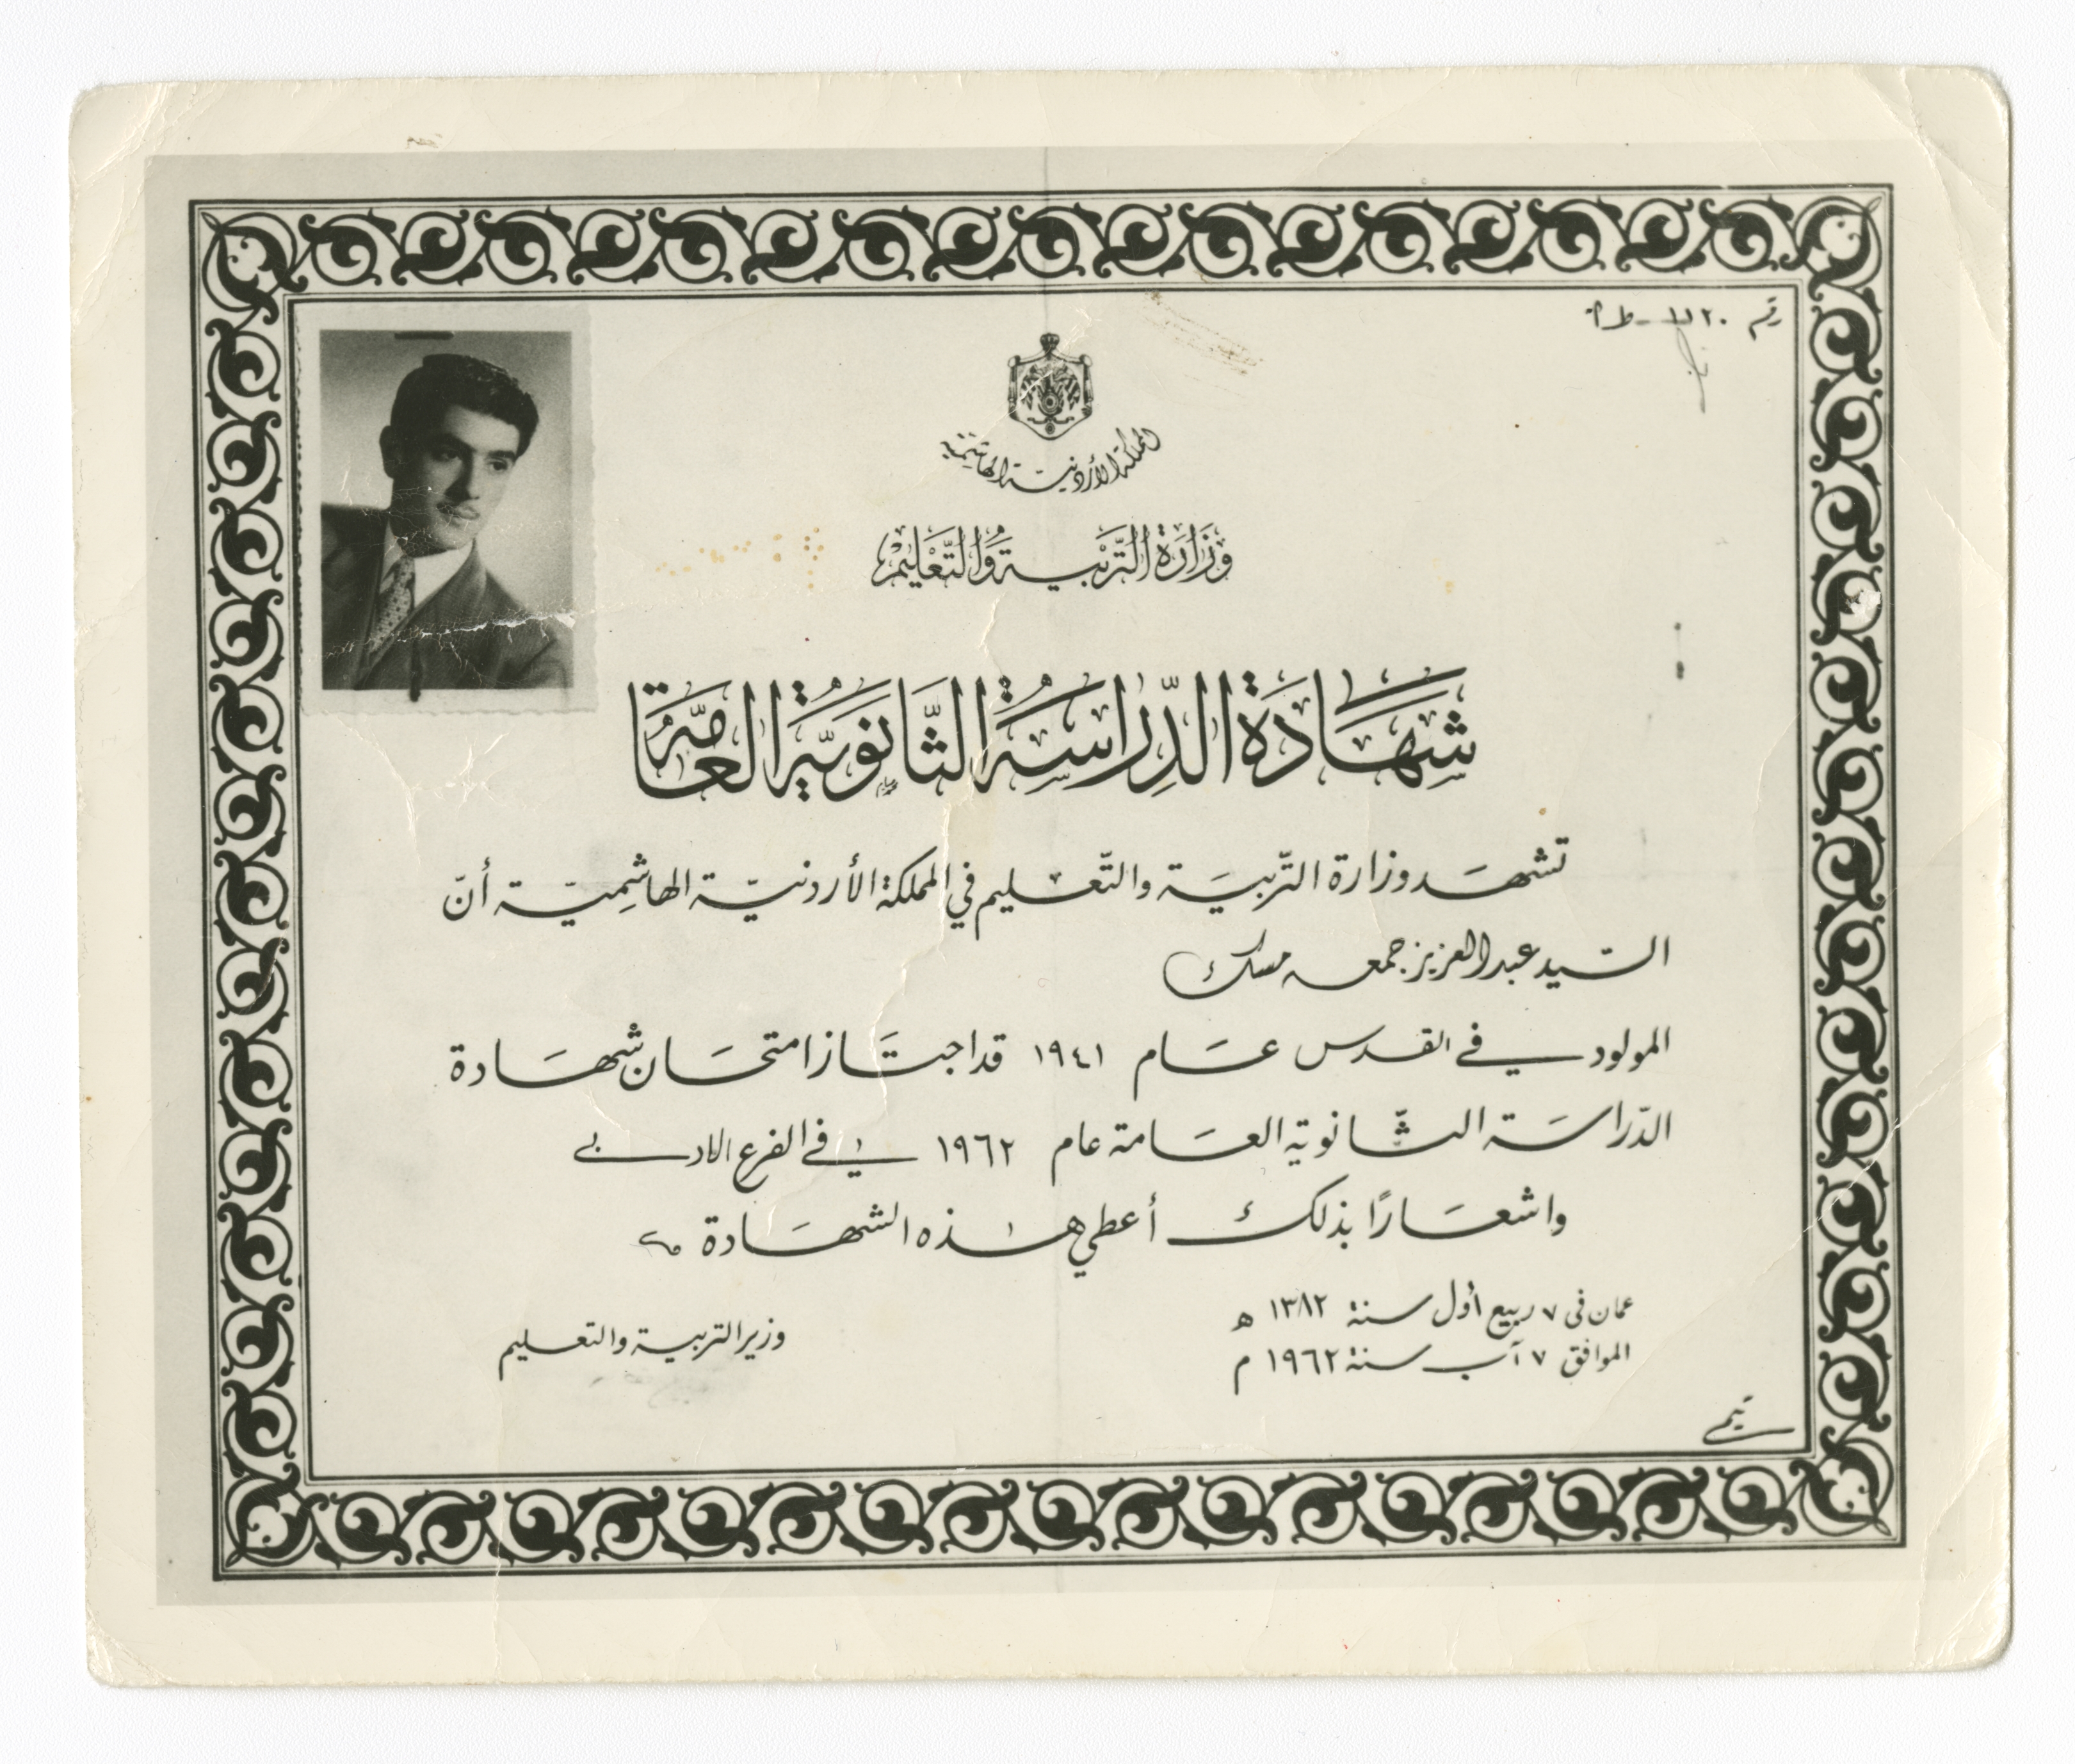 رقم ١١٢٠
المملكة الأردنية الهاشمية
وَزَارَةُ التَّرْبِيَةِ وَالتَّعْلِيمِ
شَهَادَةُ الدِّرَاسَةِ الثَّانَوِيَّةِ العَامَّةِ
تشهَد وزارة التّربيَة والتّعليم في المملكة الأردنيّة الهاشِميّة أنّ
السّيد عبد العزيز جمعه مسك
المولود في القدس عَام ١٩٤١ قد اجتَاز امتحَان شهَادة
الدّراسَة الثّانوية العَامة عام ١٩٦٢ في الفرع الادبي
واشعَارًا بذلك أعطي هذه الشهَادة
عمان في ٧ ربيع أول سنة ١٣٨٢ هـ
الموافق ٧ آب سنة ١٩٦٢ م
وزير التربية والتعليم